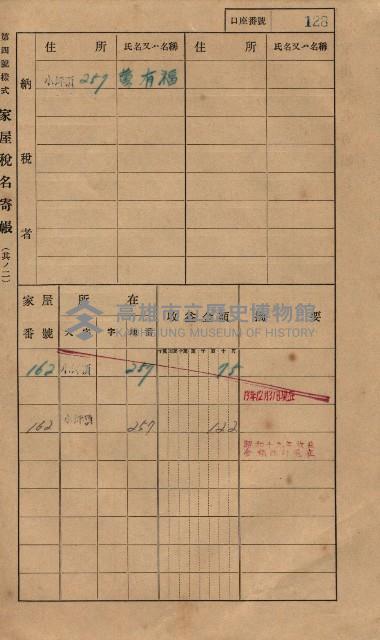 口座番號 128
第四號樣式 家屋稅名寄帳 (其ノ二)
住所 氏名又ハ名稱 住所 氏名又ハ名稱
納稅者
小坪頂 257 有福
家屋番號 所在 大字 字 地番 收益金額 摘要
高雄市立歷史博物館
KAOHSIUNG MUSEUM OF HISTORY
162 257 75
19年12月31日現在
162 小坪頂 257 122
昭和十九年